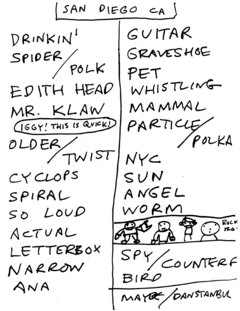 SAN DIEGO CA
DRINKIN'
SPIDER/
POLK
EDITH HEAD
MR. KLAW
IGGY! THIS IS QUICK!
OLDER/
TWIST
CYCLOPS
SPIRAL
SO LOUD
ACTUAL
LETTERBOX
NARROW
ANA
GUITAR
GRAVESHOE
PET
WHISTLING
MAMMAL
PARTICLE/
POLKA
NYC
SUN
ANGEL
WORM
ROCK
SPY/
COUNTERF
BIRD
MAYOR/DANSTANBUL